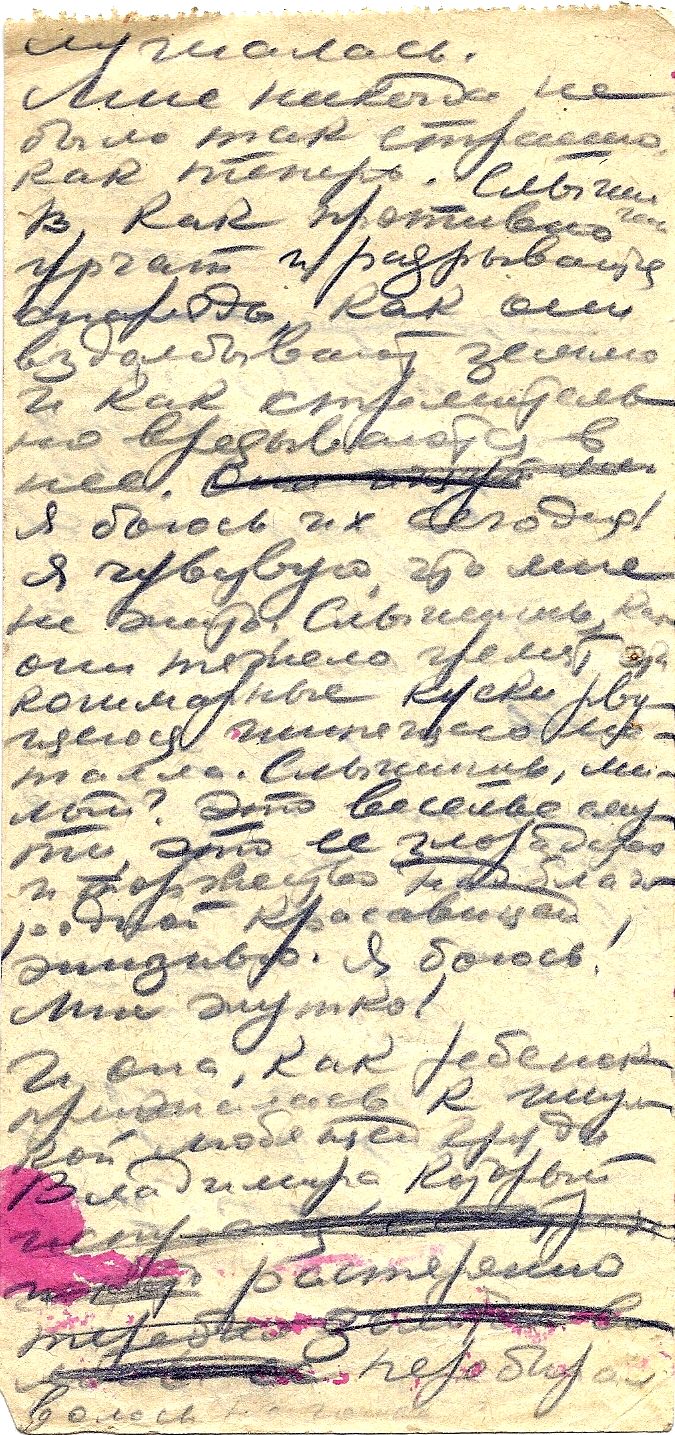 лучалась.
Мне никогда не
было так страшно,
как теперь. Слышишь
В, как противно
урчат и разрываются
снаряды, как они
вздалбывают землю
и как стремитель-
но врезываются в
нее.
Я боюсь их сегодня!
Я чувствую, что мне
не жить. Слышишь, как
они тяжело гремят эти
кошмарные куски рву-
щегося шипящего ме-
талла. Слышишь, ми-
лый? Это веселье смер-
ти, это ее злорадство
и торжество над благо-
родной красавицей,
жизнью. Я боюсь!
Мне жутко!
И она, как ребенок
прижалась к
любящей груди
Владимира который
растерянно
теребил
перебирал
волосы